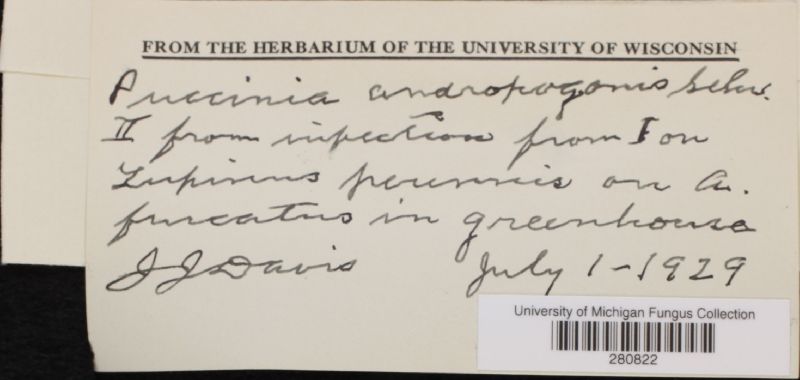 FROM THE HERBARIUM OF THE UNIVERSITY OF WISCONSIN
Puccinia andropogonis Schw.
II from infection from I on
Lupinus perennis on A.
furcatus in greenhouse
J J Davis July 1-1929
University of Michigan Fungus Collection
280822